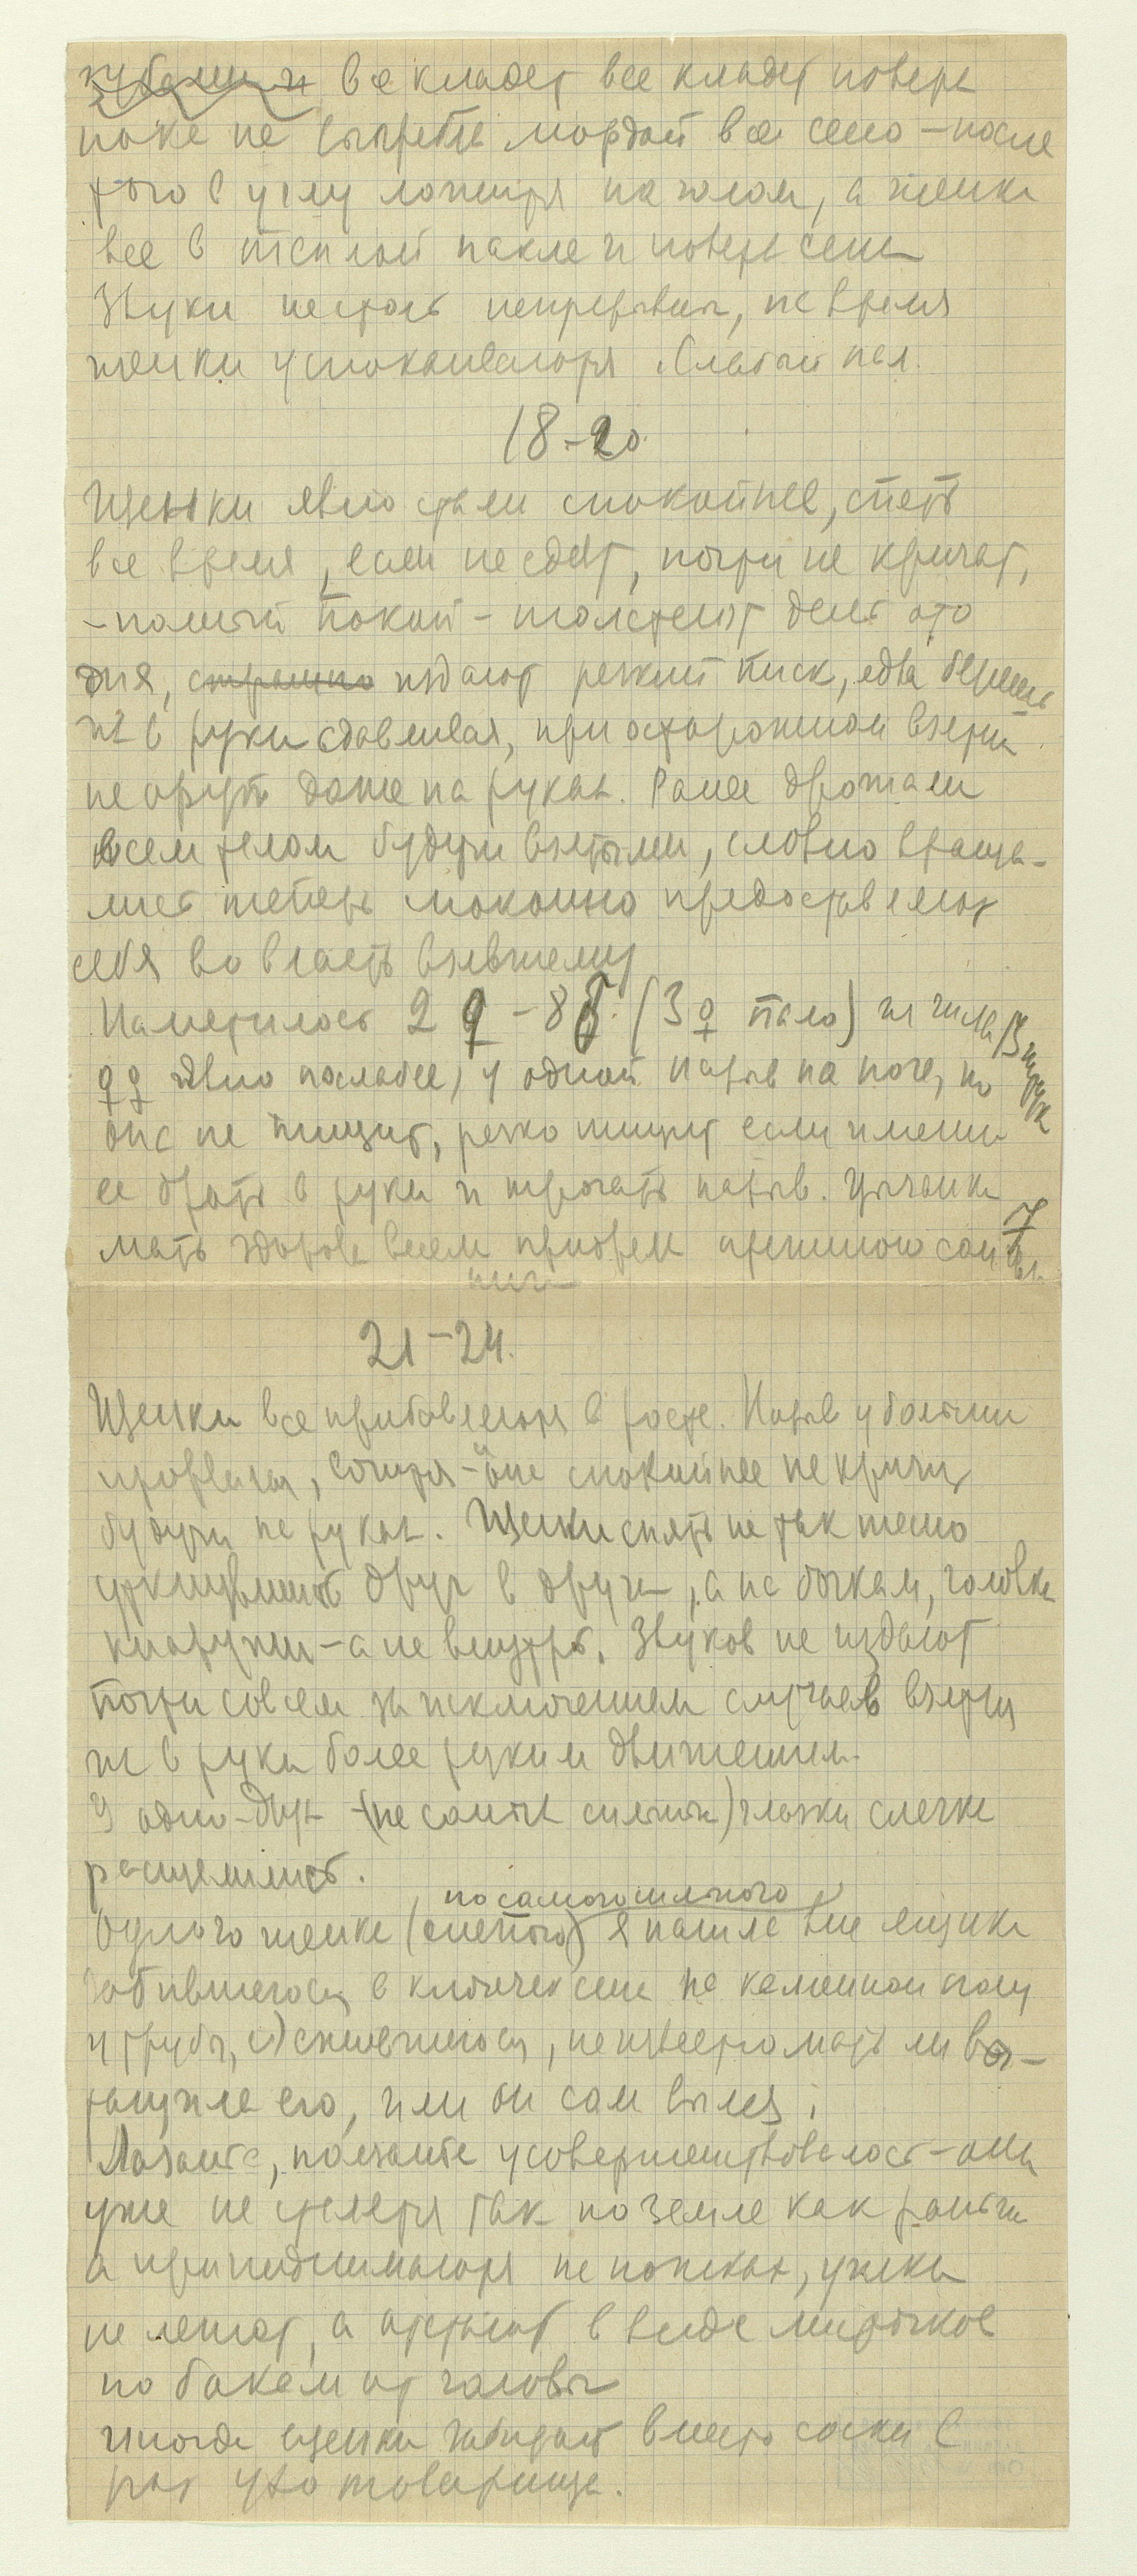 зубами и все кладет все кладет поверх
пока не выгребет мордой все сено – после
того в углу ложится на голом, а щенки
все в теплой пакле и поверх сена
Звуки не столь непрерывны, на время
щенки успокаиваются. Слабый лая.
18–20.
Щенки явно стали спокойнее, спят
все время, если не едят, почти не кричат,
– полный покой – толстеют день ото
дня, страшно издают резкий писк, едва берешь
их в руки сдавливая, при осторожном взятии
не орут даже на руках. Ранее дрожали
всем телом будучи взятыми, словно враща-
лись теперь спокойно предоставляют
себя во власть взявшему
Наметилось 2 ♀ – 8 б. (3 ♀ пало) из числа 13 штук
♀♀ явно послабее, у одной нарыв на ноге, но
она не пищит, резко пищит если именно
ее брать в руки и трогать нарыв. Цыганка
мать здорова всем
21–24.
Щенки все прибавляются в росте. Нарыв у больной
прорвался, сочится – она спокойнее не кричит
будучи на руках. Щенки спят не так тесно
друг в друга, а по бокам, головки
кнаружи – а не внутрь. Звуков не издают
почти совсем за исключением случаев взятия
их в руки более резким движением.
У одно-двух (не самых сильных) глазки слегка
расщемились.
но самого сильного
Одного щенка (слепого) я нашла вне ящика
забившегося в клочек сена на каменном полу
у трубы, съежившегося, неизвестно мать ли вы-
тащила его, или он сам вылез;
Лазанье, ползанье усовершенствовалось – они
уже не стелятся так по земле как раньше
а приподнимаются на ножках, ушки
не лежат, а отстают в виде листочков
по бокам от головы
Иногда щенки забирают вместо соски в
рот ухо товарища.